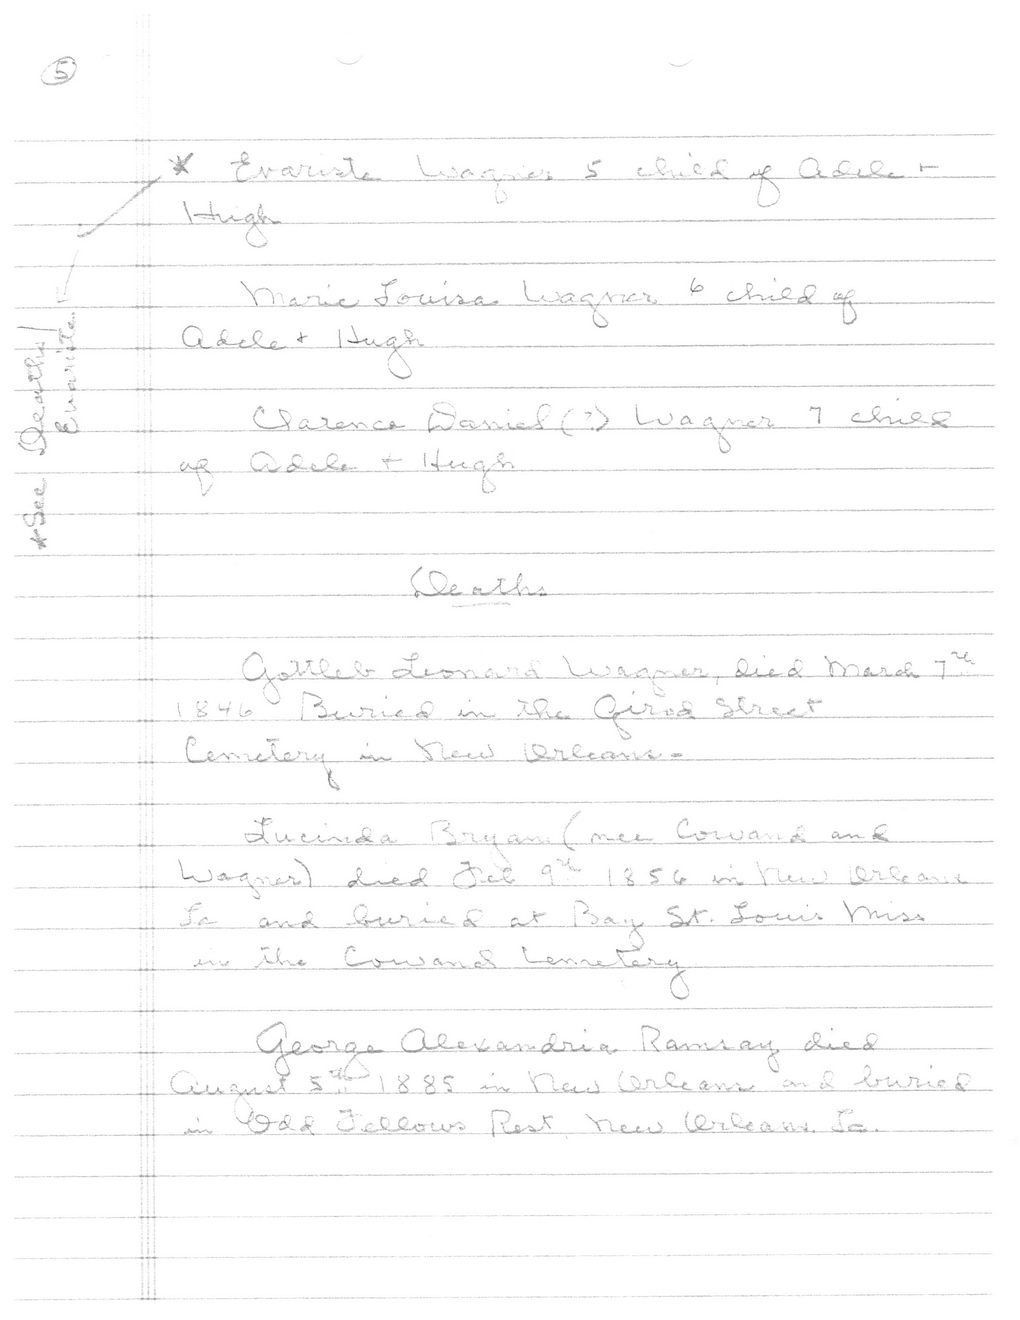 5
* Evariste Wagner 5 child of Adele +
Hugh
Marie Louisa Wagner 6 child of
Adele + Hugh
Clarence Daniel (?) Wagner 7 child
of Adele + Hugh
*See Deaths/
Evariste
Deaths
Gottleb Leonard Wagner, died March 7th
1846 Buried in the Girod Street
Cemetery in New Orleans-
Lucinda Bryan (nee Cowand and
Wagner) died Feb 9th 1856 in New Orleans
La and buried at Bay St. Louis Miss
in the Cowand Cemetery
George Alexandria Ramsay died
August 5th 1885 in New Orleans and buried
in Odd Fellows Rest New Orleans. La.